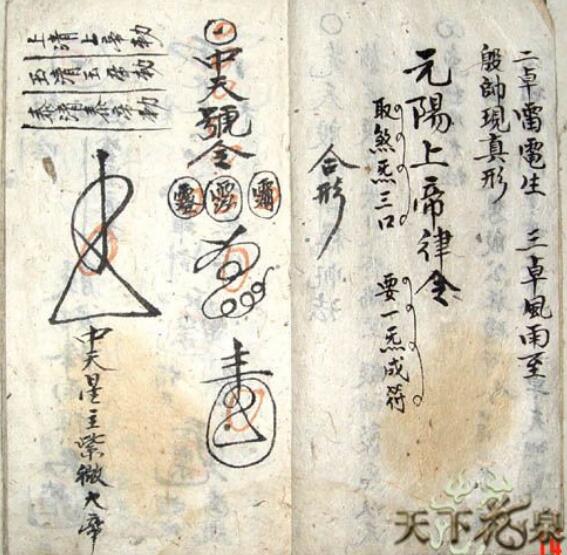 二卓雷電生　三卓風雨至
殷帥現真形
元陽上帝律令
取煞炁三口　要一炁成符
合形
中天號令
上清上帝勅
玉清玉帝勅
泰清泰帝勅
中天星主紫微大帝
天下花泉
14